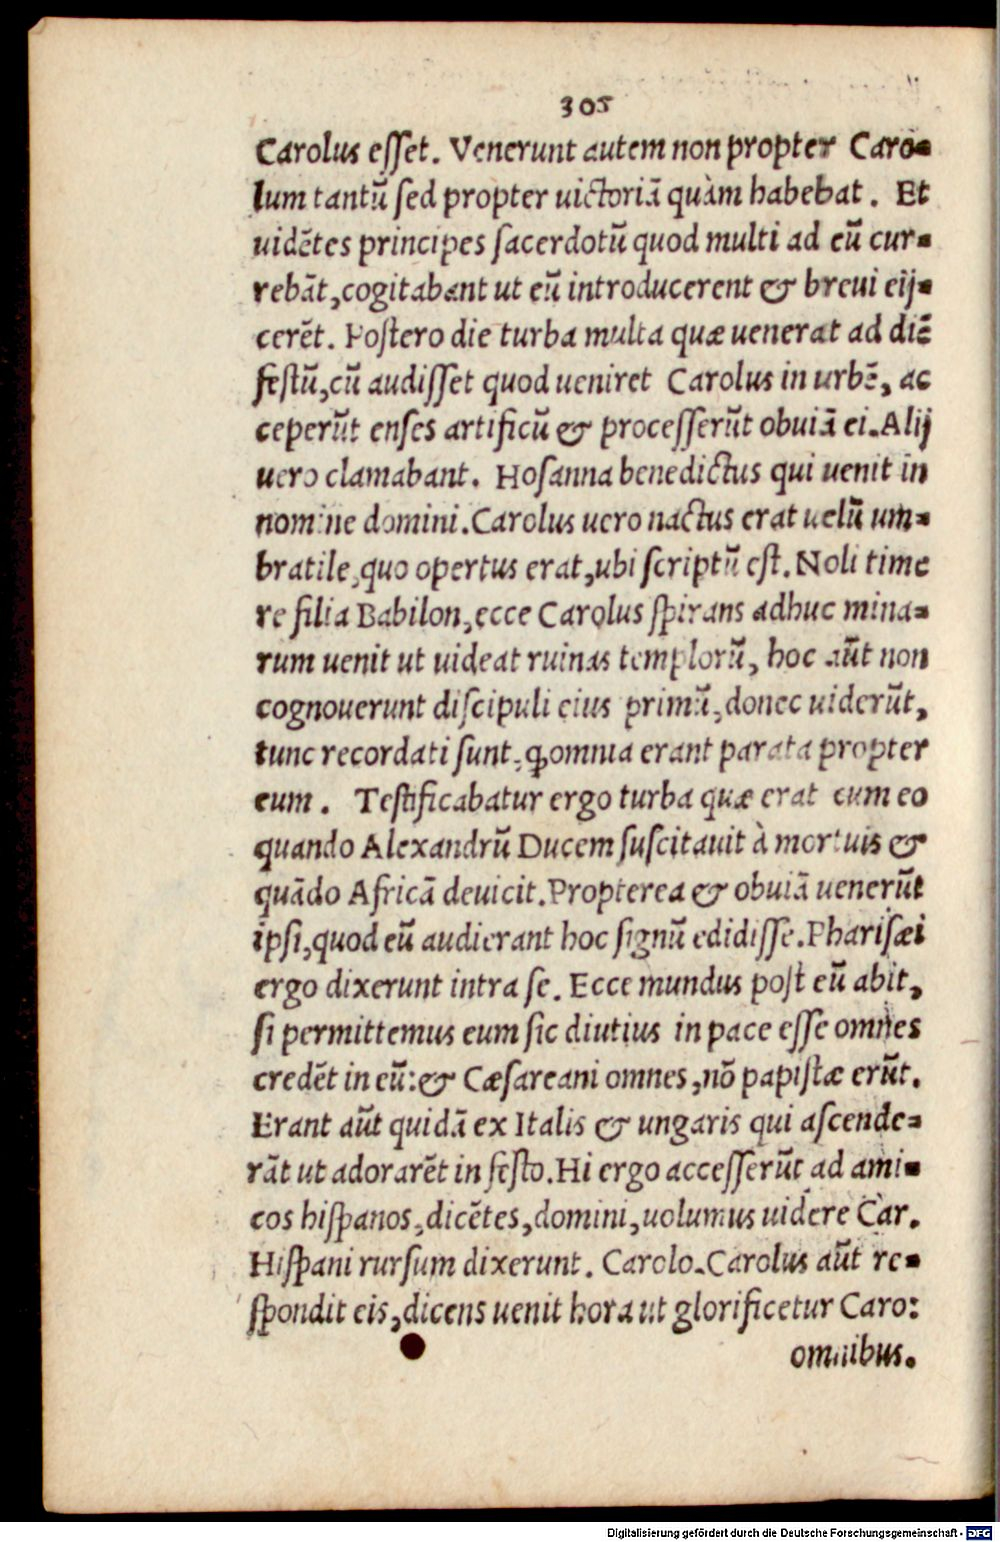 305
Carolus esset. Venerunt autem non propter Caro-
lum tantũ sed propter uictoriã quàm habebat. Et
uidẽtes principes sacerdotũ quod multi ad eũ cur-
rebãt, cogitabant ut eũ introducerent & breui eij-
cerẽt. Postero die turba multa quæ uenerat ad diẽ
festũ, cũ audisset quod ueniret Carolus in urbẽ, ac
ceperũt enses artificũ & processerũt obuiã ei. Alij
uero clamabant. Hosanna benedictus qui uenit in
nomine domini. Carolus uero nactus erat uelũ um-
bratile, quo opertus erat, ubi scriptũ est. Noli time
re filia Babilon, ecce Carolus spirans adhuc mina-
rum uenit ut uideat ruinas templorũ, hoc aũt non
cognouerunt discipuli eius primũ, donec uiderũt,
tunc recordati sunt, ꝙ omnia erant parata propter
eum. Testificabatur ergo turba quæ erat cum eo
quando Alexandrũ Ducem suscitauit à mortuis &
quãdo Africã deuicit. Propterea & obuiã uenerũt
ipsi, quod eũ audierant hoc signũ edidisse. Pharisæi
ergo dixerunt intra se. Ecce mundus post eũ abit,
si permittemus eum sic diutius in pace esse omnes
credẽt in eũ: & Cæsareani omnes, nõ papistæ erũt.
Erant aũt quidã ex Italis & ungaris qui ascende-
rãt ut adorarẽt in festo. Hi ergo accesserũt ad ami-
cos hispanos, dicẽtes, domini, uolumus uidere Car.
Hispani rursum dixerunt. Carolo. Carolus aũt re-
spondit eis, dicens uenit hora ut glorificetur Caro:
omnibus.
Digitalisierung gefördert durch die Deutsche Forschungsgemeinschaft - DFG